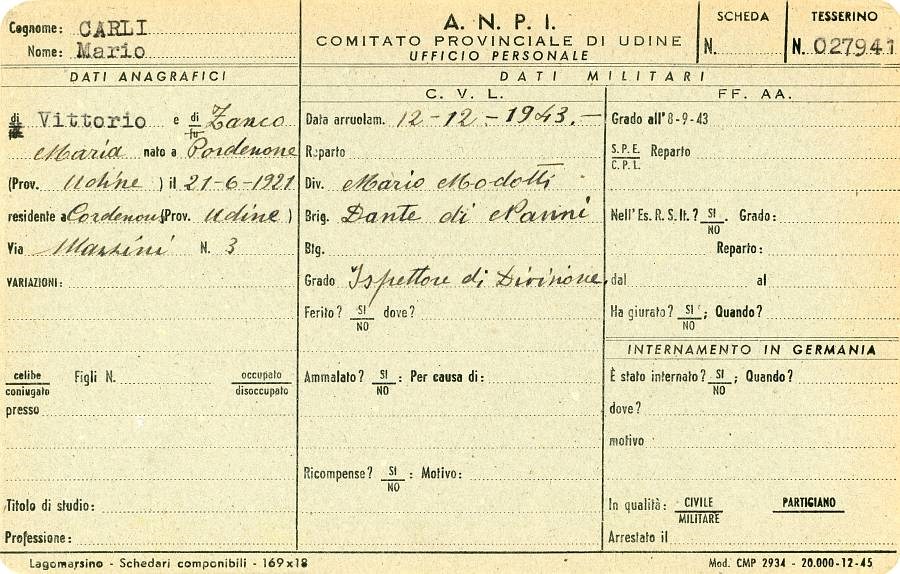 Cognome: CARLI
Nome: Mario
A. N. P. I.
COMITATO PROVINCIALE DI UDINE
UFFICIO PERSONALE
SCHEDA
N.
TESSERINO
N. 027941
DATI ANAGRAFICI
di Vittorio e di Zanco
fu
Maria nato a Pordenone
(Prov. Udine ) il 21-6-1921
residente a Cordenons (Prov. Udine )
Via Mazzini N. 3
VARIAZIONI:
celibe
coniugato
Figli N.
occupato
disoccupato
presso
Titolo di studio:
Professione:
DATI MILITARI
C. V. L.
Data arruolam. 12-12-1943.-
R:parto
Div. Mario Modotti
Brig. Dante di Nanni
Btg.
Grado Ispettore di Divisione
Ferito? SI
NO
dove?
Ammalato? SI
NO
: Per causa di:
Ricompense? SI
NO
: Motivo:
FF. AA.
Grado all'8-9-43
S.P.E.
C.P.L.
Reparto
Nell'Es. R. S. It.? SI
NO
. Grado:
Reparto:
dal al
Ha giurato? SI
NO
; Quando?
INTERNAMENTO IN GERMANIA
È stato internato? SI
NO
; Quando?
dove?
motivo
In qualità: CIVILE
MILITARE
PARTIGIANO
Arrestato il
Lagomarsino - Schedari componibili - 169x18
Mod. CMP 2934 - 20.000-12-45